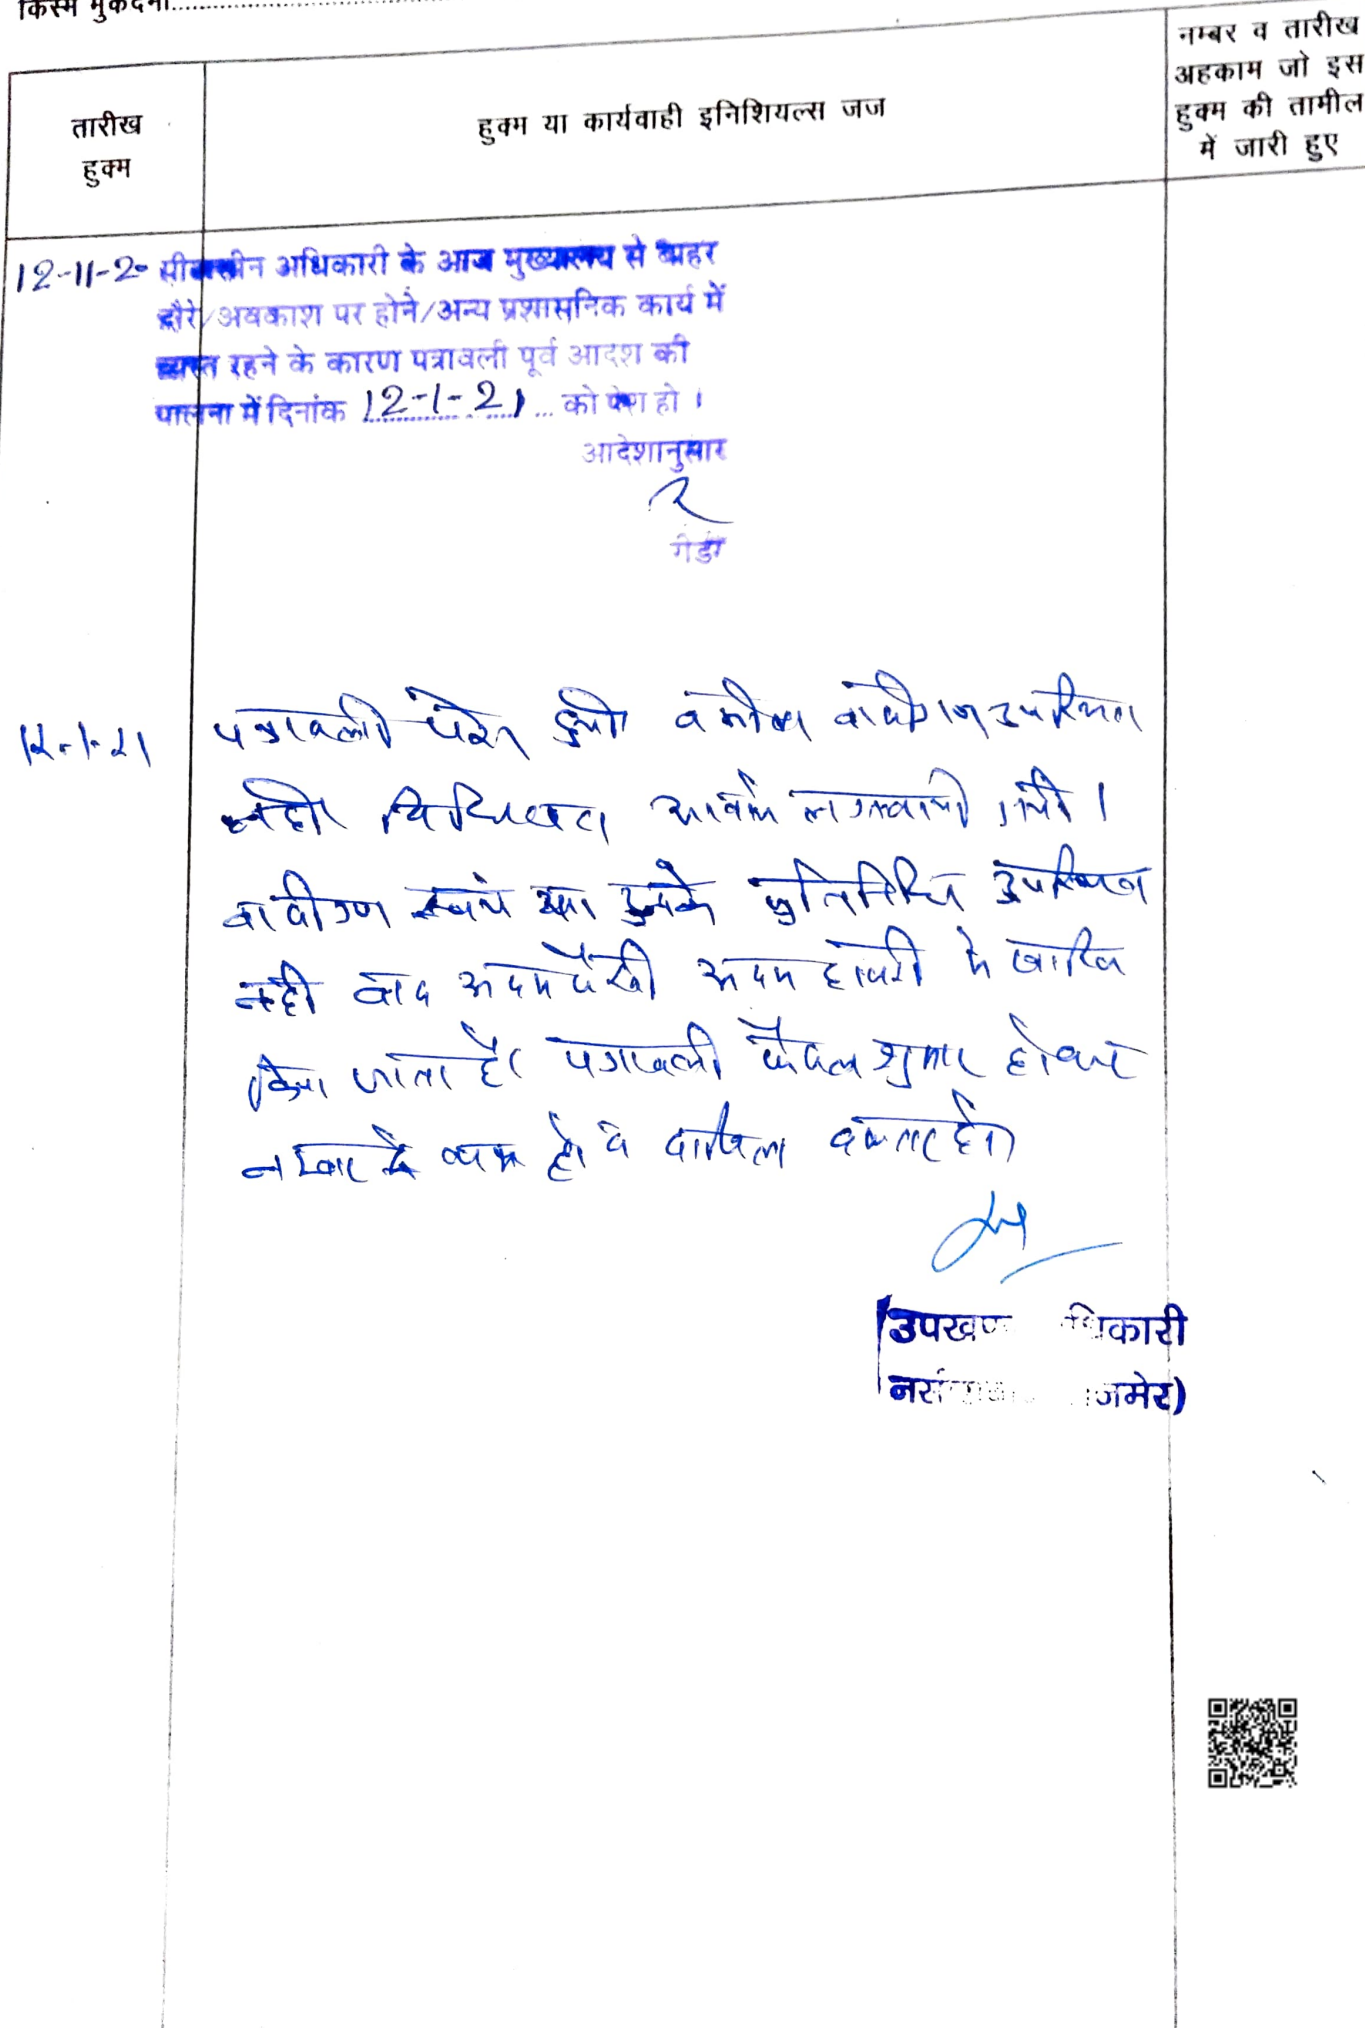 किस्म मुकदमा
तारीख
हुक्म
हुक्म या कार्यवाही इनिशियल्स जज
नम्बर व तारीख
अहकाम जो इस
हुक्म की तामील
में जारी हुए
12-11-20 पीठासीन अधिकारी के आज मुख्यालय से बाहर
दौरे/अवकाश पर होने/अन्य प्रशासनिक कार्य में
व्यस्त रहने के कारण पत्रावली पूर्व आदश की
पालना में दिनांक 12-1-21 को पेश हो ।
आदेशानुसार
12-1-21
पत्रावली पेश हुयी वकील वादीगण उपस्थित
नही विधिवत आवाजे लगवायी गयी ।
वादीगण स्वयं या उनके प्रतिनिधि उपस्थित
नही वाद अदम पैरवी अदम हाजरी मे खारिज
किया जाता है। पत्रावली फैसल शुमार होकर
नम्बर से कम हो व दाखिल दफ्तर हो।
उपखण अधिकारी
नसी जमेर)